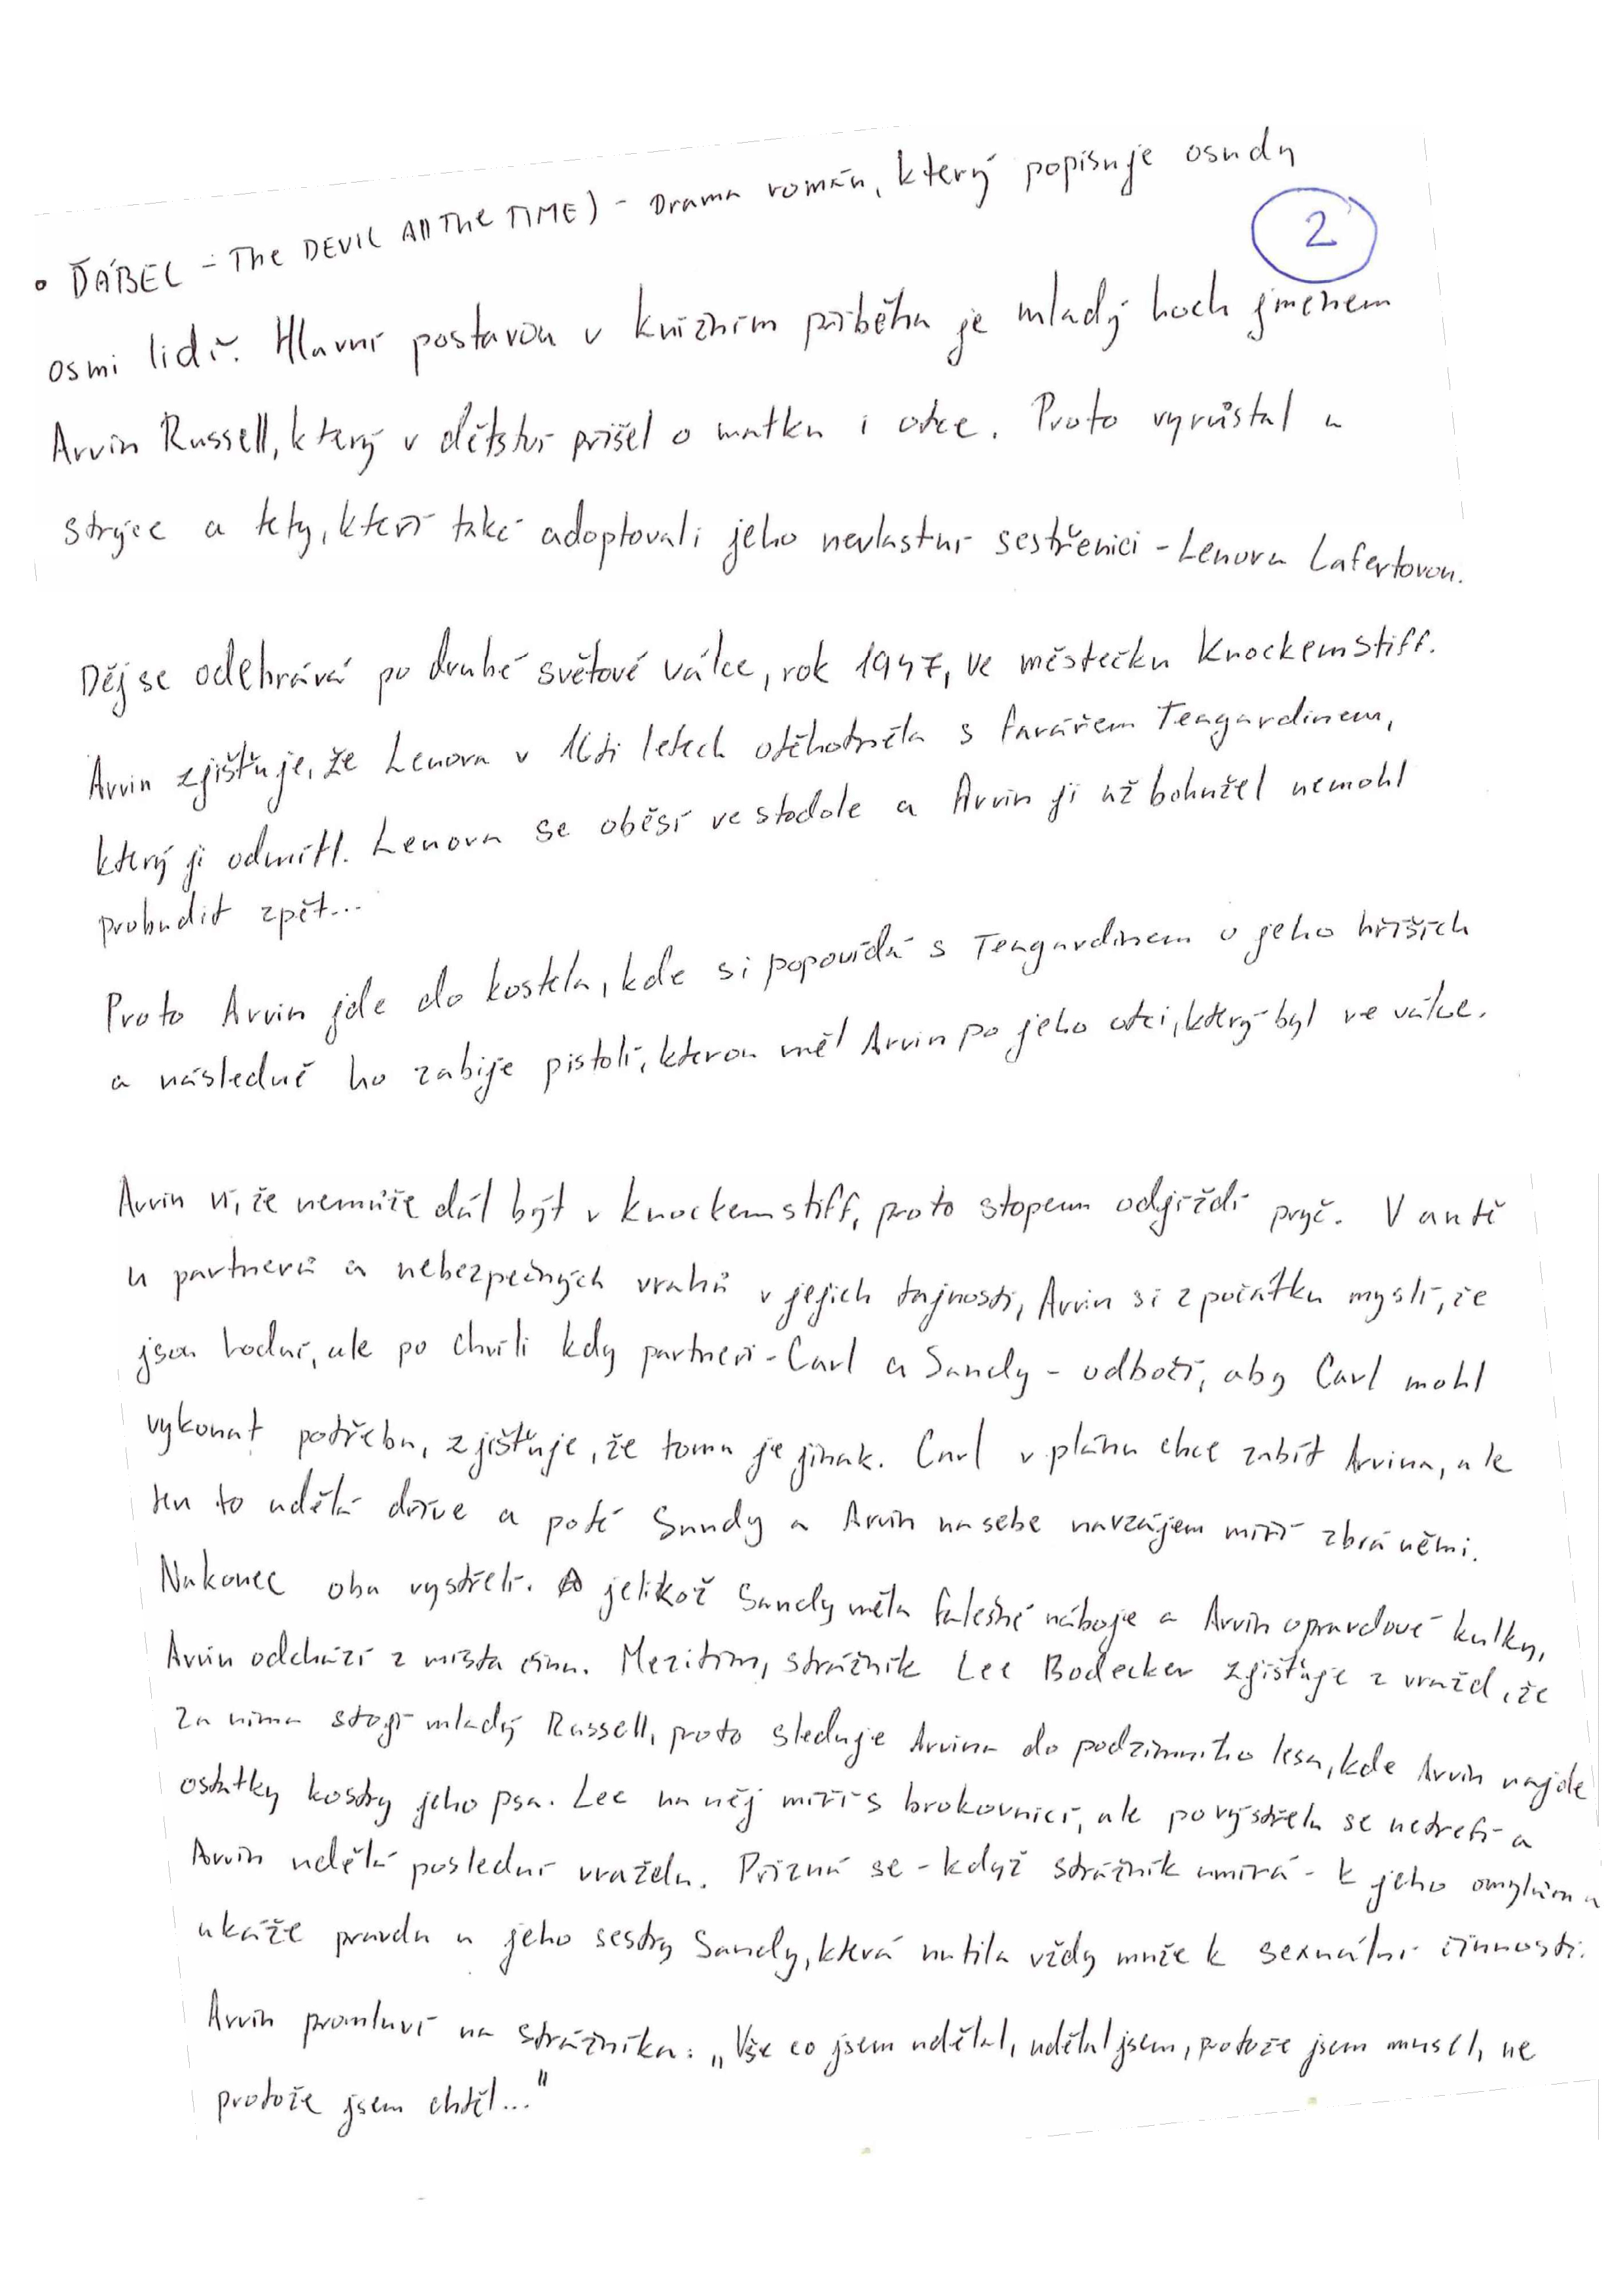 • ĎÁBEL - The DEVIL All The TIME) - Drama román, který popisuje osudy
2
osmi lidí. Hlavní postavou v knižním příběhu je mladý hoch jménem
Arvin Russell, který v dětství přišel o matku i otce. Proto vyrůstal u
strýce a tety, kteří také adoptovali jeho nevlastní sestřenici - Lenoru Lafertovou.
Děj se odehrává po druhé světové válce, rok 1947, ve městečku Knockemstiff.
Arvin zjišťuje, že Lenora v 16ti letech otěhotněla s farářem Teagardinem,
který ji odmítl. Lenora se oběsí ve stodole a Arvin ji už bohužel nemohl
probudit zpět...
Proto Arvin jde do kostela, kde si popovídá s Teagardinem o jeho hříších
a následně ho zabije pistolí, kterou měl Arvin po jeho otci, který byl ve válce.
Arvin ví, že nemůže dál být v Knockemstiff, proto stopem odjíždí pryč. V autě
u partnerů a nebezpečných vrahů v jejich tajnosti, Arvin si z počátku myslí, že
jsou hodní, ale po chvíli kdy partneři - Carl a Sandy - odbočí, aby Carl mohl
vykonat potřebu, zjišťuje, že tomu je jinak. Carl v plánu chce zabít Arvina, ale
ten to udělá dříve a poté Sandy a Arvin na sebe navzájem míří zbráněmi.
Nakonec oba vystřelí. jelikož Sandy měla falešné náboje a Arvin opravdové kulky,
Arvin odchází z místa činu. Mezitím, strážník Lee Bodecker zjišťuje z vražd, že
za nima stojí mladý Russell, proto sleduje Arvina do podzimního lesa, kde Arvin najde
ostatky kostry jeho psa. Lee na něj míří s brokovnicí, ale po výstřelu se netrefí a
Arvin udělá poslední vraždu. Přizná se - když strážník umírá - k jeho omylům a
ukáže pravdu u jeho sestry Sandy, která nutila vždy muže k sexuální činnosti.
Arvin promluví na strážníka: „Vše co jsem udělal, udělal jsem, protože jsem musel, ne
protože jsem chtěl..."